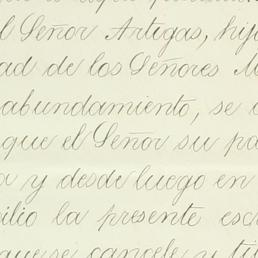 el Señor Artigas, hijo
ad de los Señores
abundamiento, se
que el Señor su pa
a y desde luego en
ilio la presente esc
que se cancele y ti